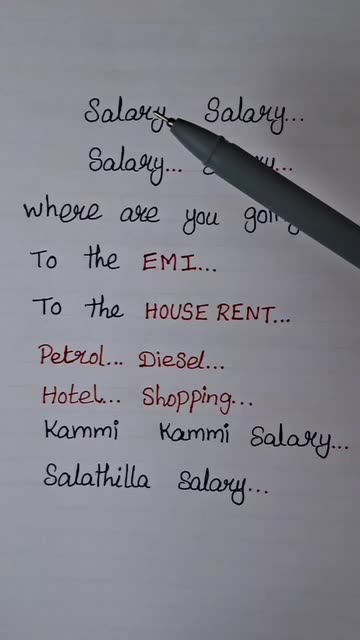 Salary Salary...
Salary... ...
where are you going
To the EMI...
To the HOUSE RENT...
Petrol... Diesel...
Hotel... Shopping...
Kammi Kammi Salary...
Salathilla Salary...